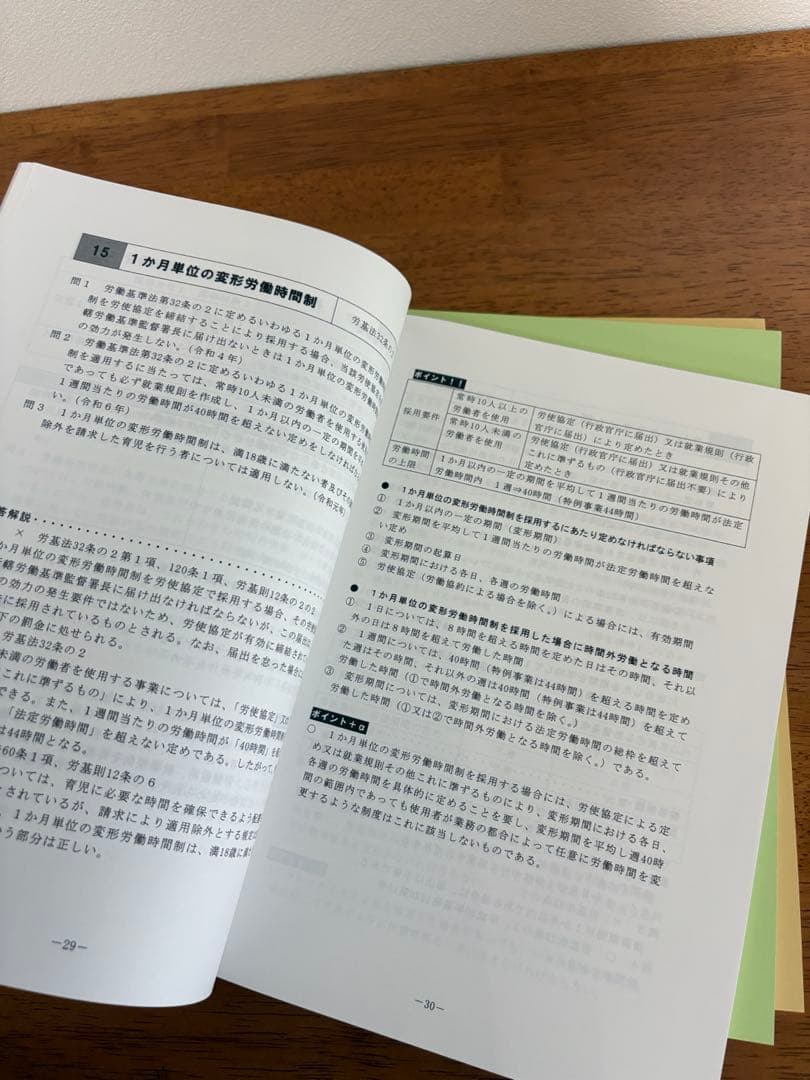 15 1か月単位の変形労働時間制
労基法32条の2
問1 労働基準法第32条の2に定めるいわゆる1か月単位の変形労働時間
制を労使協定を締結することにより採用する場合、当該労使協定を
轄労働基準監督署長に届け出ないときは1か月単位の変形労働時間制
の効力が発生しない。(令和4年)
問2 労働基準法第32条の2に定めるいわゆる1か月単位の変形労働時間
制を適用するに当たっては、常時10人未満の労働者を使用する
であっても必ず就業規則を作成し、1か月以内の一定の期間を平均し
1週間当たりの労働時間が40時間を超えない定めをしなければな
い。(令和6年)
問3 1か月単位の変形労働時間制は、満18歳に満たない者及びその
除外を請求した育児を行う者については適用しない。(令和元年)
答解説
× 労基法32条の2第1項、120条1項、労基則12条の2の2
か月単位の変形労働時間制を労使協定で採用する場合、その労使
轄労働基準監督署長に届け出なければならないが、この届出
の効力の発生要件ではないため、労使協定が有効に締結されて
に採用されているものとされる。なお、届出を怠った場合に
下の罰金に処せられる。
労基法32条の2
未満の労働者を使用する事業については、「労使協定」又
これに準ずるもの」により、1か月単位の変形労働時間制
できる。また、1週間当たりの労働時間が「40時間」を超
「法定労働時間」を超えない定めである。したがって、
は44時間となる。
60条1項、労基則12条の6
ついては、育児に必要な時間を確保できるよう配慮
とされているが、請求により適用除外とする規定は
、1か月単位の変形労働時間制は、満18歳に満た
いう部分は正しい。
―29―
ポイント!!
採用要件
常時10人以上の
労働者を使用
労使協定(行政官庁に届出)又は就業規則(行政
官庁に届出)により定めたとき
常時10人未満の
労働者を使用
労使協定(行政官庁に届出)又は就業規則その他
これに準ずるもの(行政官庁に届出不要)により
定めたとき
労働時間
の上限
1か月以内の一定の期間を平均して1週間当たりの労働時間が法定
労働時間内 1週⇒40時間(特例事業44時間)
● 1か月単位の変形労働時間制を採用するにあたり定めなければならない事項
① 1か月以内の一定の期間(変形期間)
② 変形期間を平均して1週間当たりの労働時間が法定労働時間を超えな
い定め
③ 変形期間の起算日
④ 変形期間における各日、各週の労働時間
⑤ 労使協定(労働協約による場合を除く。)による場合には、有効期間
● 1か月単位の変形労働時間制を採用した場合に時間外労働となる時間
① 1日については、8時間を超える時間を定めた日はその時間、それ以
外の日は8時間を超えて労働した時間
② 1週間については、40時間(特例事業は44時間)を超える時間を定め
た週はその時間、それ以外の週は40時間(特例事業は44時間)を超えて
労働した時間(①で時間外労働となる時間を除く。)
③ 変形期間については、変形期間における法定労働時間の総枠を超えて
労働した時間(①又は②で時間外労働となる時間を除く。)である。
ポイント+α
○ 1か月単位の変形労働時間制を採用する場合には、労使協定による定
め又は就業規則その他これに準ずるものにより、変形期間における各日、
各週の労働時間を具体的に定めることを要し、変形期間を平均し週40時
間の範囲内であっても使用者が業務の都合によって任意に労働時間を変
更するような制度はこれに該当しないものである。
―30―